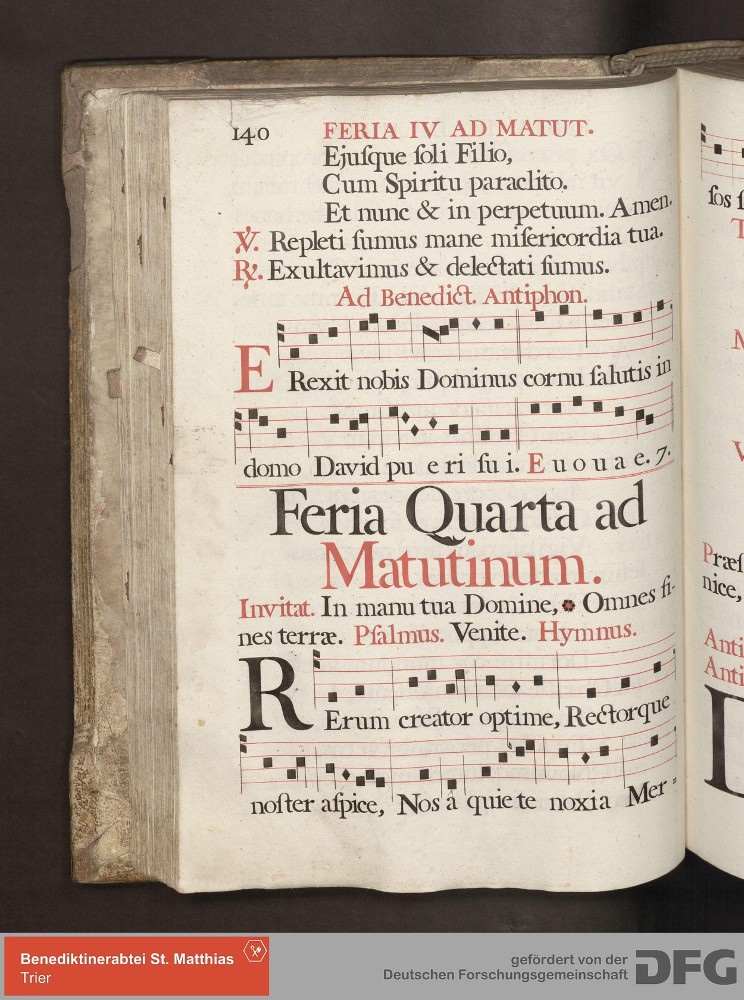 140 FERIA IV AD MATUT.
Ejuſque ſoli Filio,
Cum Spiritu paraclito.
Et nunc & in perpetuum. Amen.
℣. Repleti ſumus mane miſericordia tua.
℟. Exultavimus & delectati ſumus.
Ad Benedict. Antiphon.
E Rexit nobis Dominus cornu ſalutis in
domo David pu e ri ſu i. E u o u a e. 7.
Feria Quarta ad
Matutinum.
Invitat. In manu tua Domine, Omnes fi-
nes terræ. Pſalmus. Venite. Hymnus.
R Erum creator optime, Rectorque
noſter aſpice, Nos à quie te noxia Mer=
ſos
Præſ
nice,
Anti
Anti
Benediktinerabtei St. Matthias
Trier
gefördert von der
Deutschen Forschungsgemeinschaft
DFG